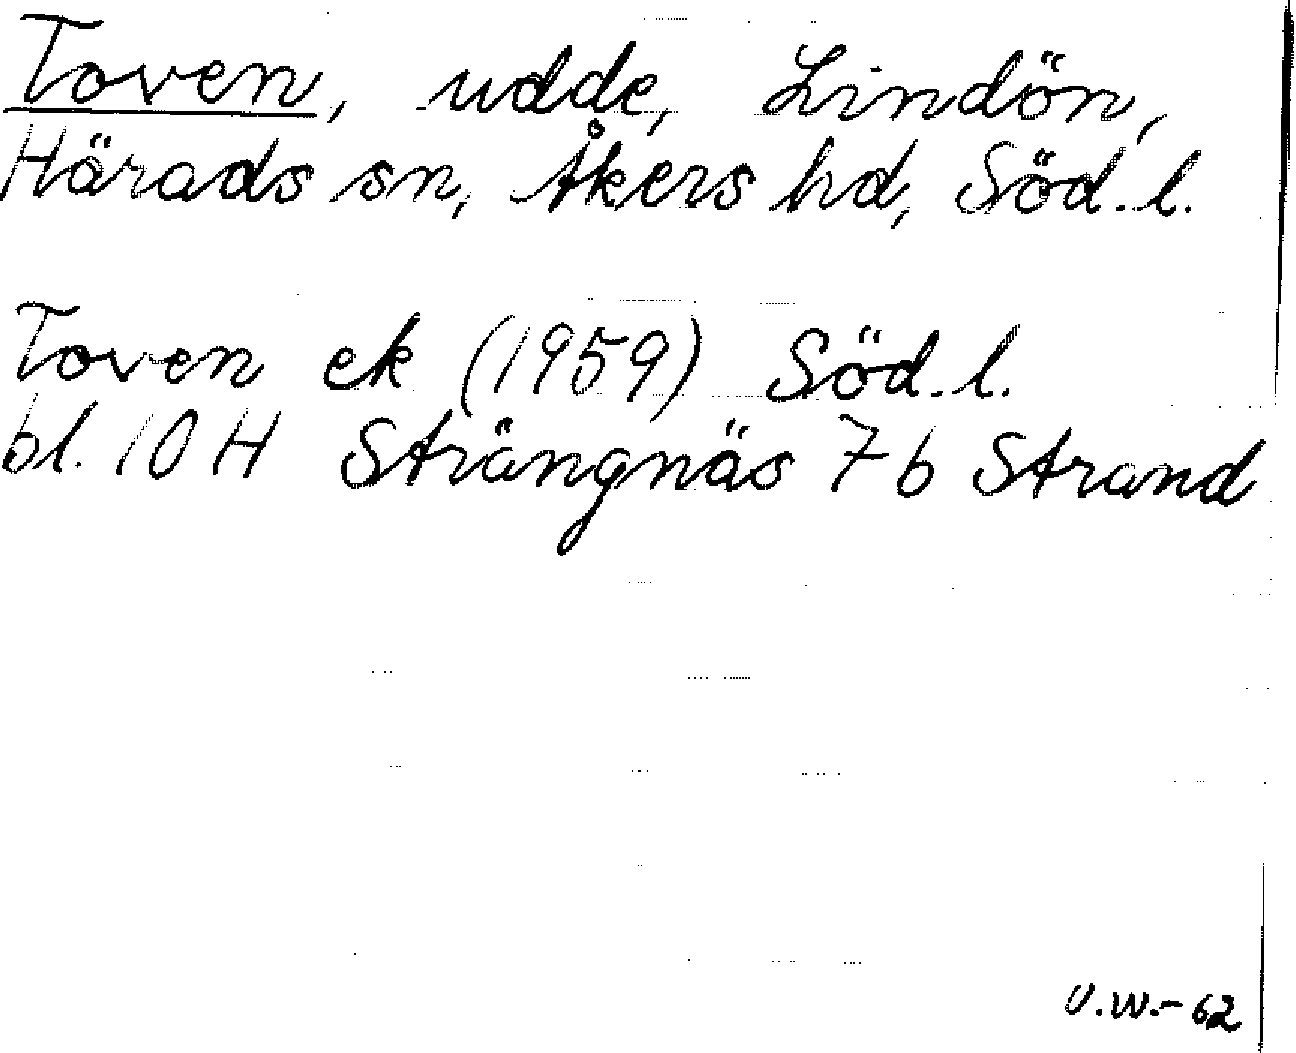 Toven, udde, Lindön,
Härads sn, Åkers hd, Söd. l.
Toven ek (1959) Söd. l.
bl. 10 H Strängnäs 7b Strand
U.W.-62